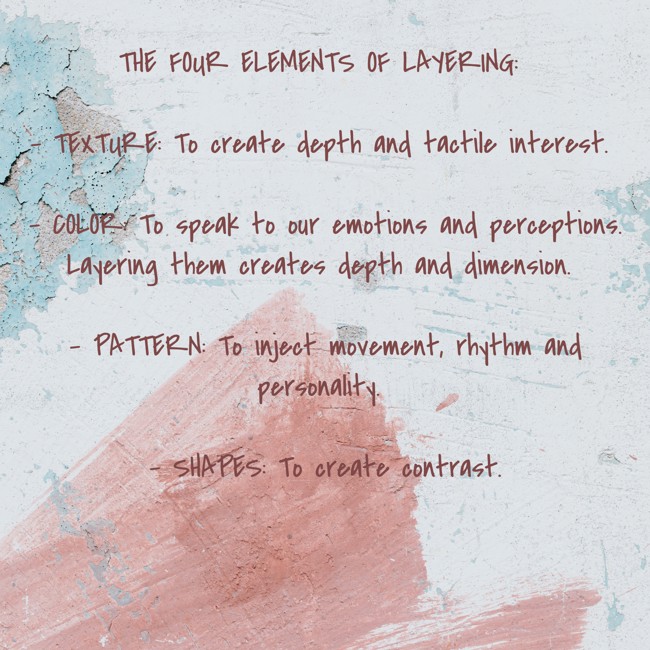 THE FOUR ELEMENTS OF LAYERING:
- TEXTURE: To create depth and tactile interest.
- COLOR: To speak to our emotions and perceptions.
Layering them creates depth and dimension.
- PATTERN: To inject movement, rhythm and
personality.
- SHAPES: To create contrast.